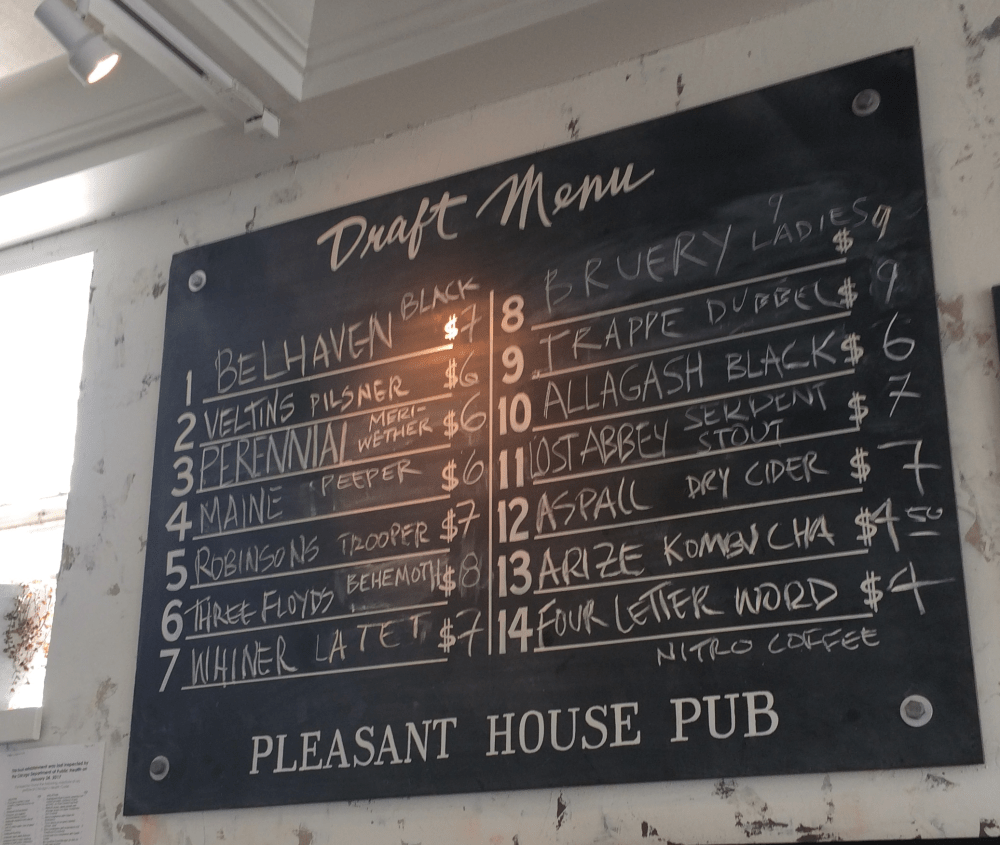 Draft Menu
1 BELHAVEN BLACK $7
2 VELTINS PILSNER $6
3 PERENNIAL MERI-
WETHER $6
4 MAINE PEEPER $6
5 ROBINSONS TROOPER $7
6 THREE FLOYDS BEHEMOTH $8
7 WHINER LA TET $7
8 BRUERY 9 LADIES $9
9 TRAPPE DUBBEL $9
10 ALLAGASH BLACK $6
11 LOST ABBEY SERPENT
STOUT $7
12 ASPALL DRY CIDER $7
13 ARIZE KOMBUCHA $4 50
14 FOUR LETTER WORD $4
NITRO COFFEE
PLEASANT HOUSE PUB